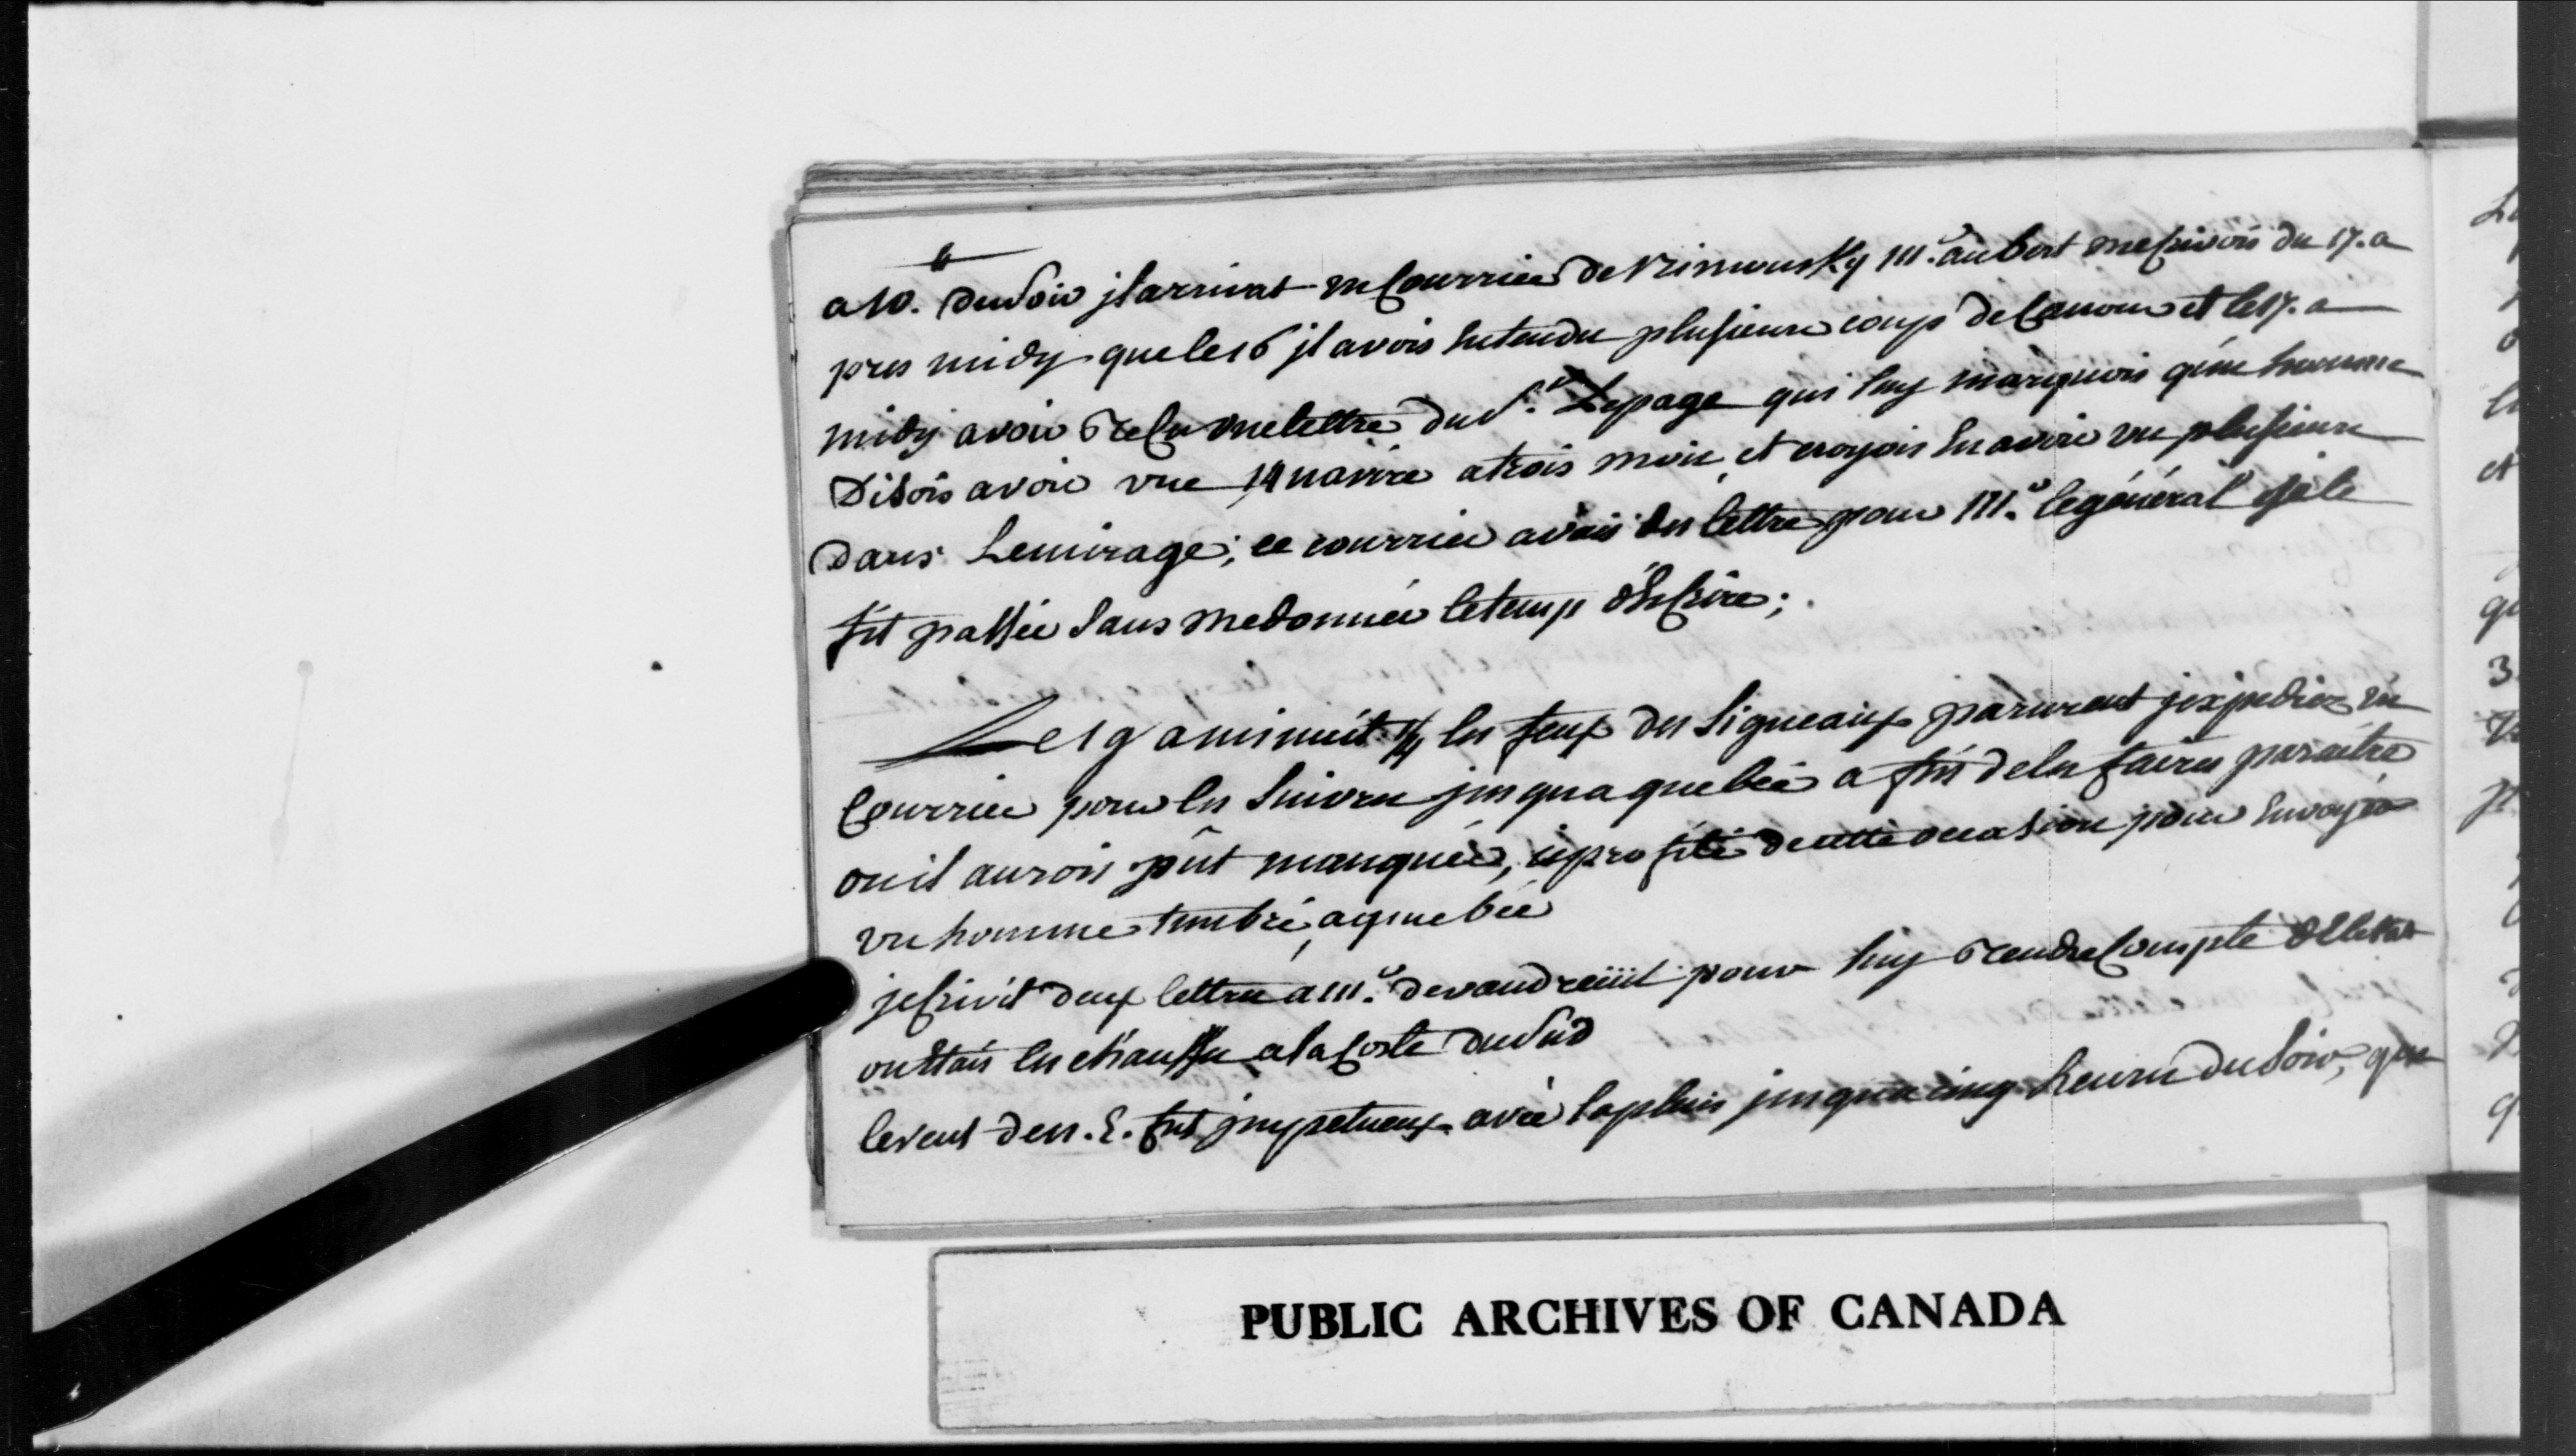 a 10.h du soir jl arrivat un Courrier de Rimousky M.r aubert mecrivois du 17. a
pres midy que le 16 jl avois Entendu plusieure coups de Canon et le 17. a
midy avoir Recu une lettre du S.r Lepage qui luy marquois qu'un homme
Disois avoir vue 14 navire a trois mois, et croyois En avoir vu plusieure
dans Le mirage; ce courrier avais des lettre pour M.r le général je le
fit passer sans me donner le temp d'Ecrire;
Le 19 a minuit 1/4 les feux des Signeaux parurent jexpediez un
Courrier pour les Suivre jusqua quebec a fin de les faires paraitre
ou il aurois pût manquer, je profite de cette occasion pour Envoyer
un homme timbré, a quebec
jecrivit deux lettres a M.r devaudreüil pour luy Rendre Compte de letat
ou Etais les chausse a la Coste du Sud
le vent de n. E. fut jmpetueux avec la pluis jusqua cinq heures du Soir, que
PUBLIC ARCHIVES OF CANADA